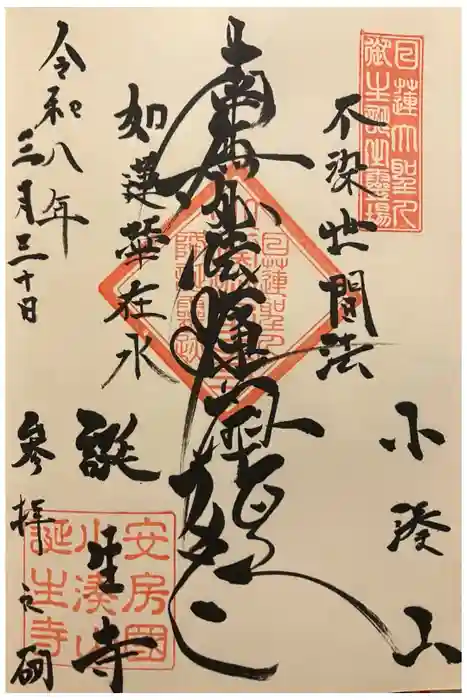 日蓮大聖人
御生誕之霊場
不染世間法
小湊山
南無妙法蓮華経
如蓮華在水
誕生寺
安房国
小湊山
誕生寺
令和八年
三月三十日
参拝之砌